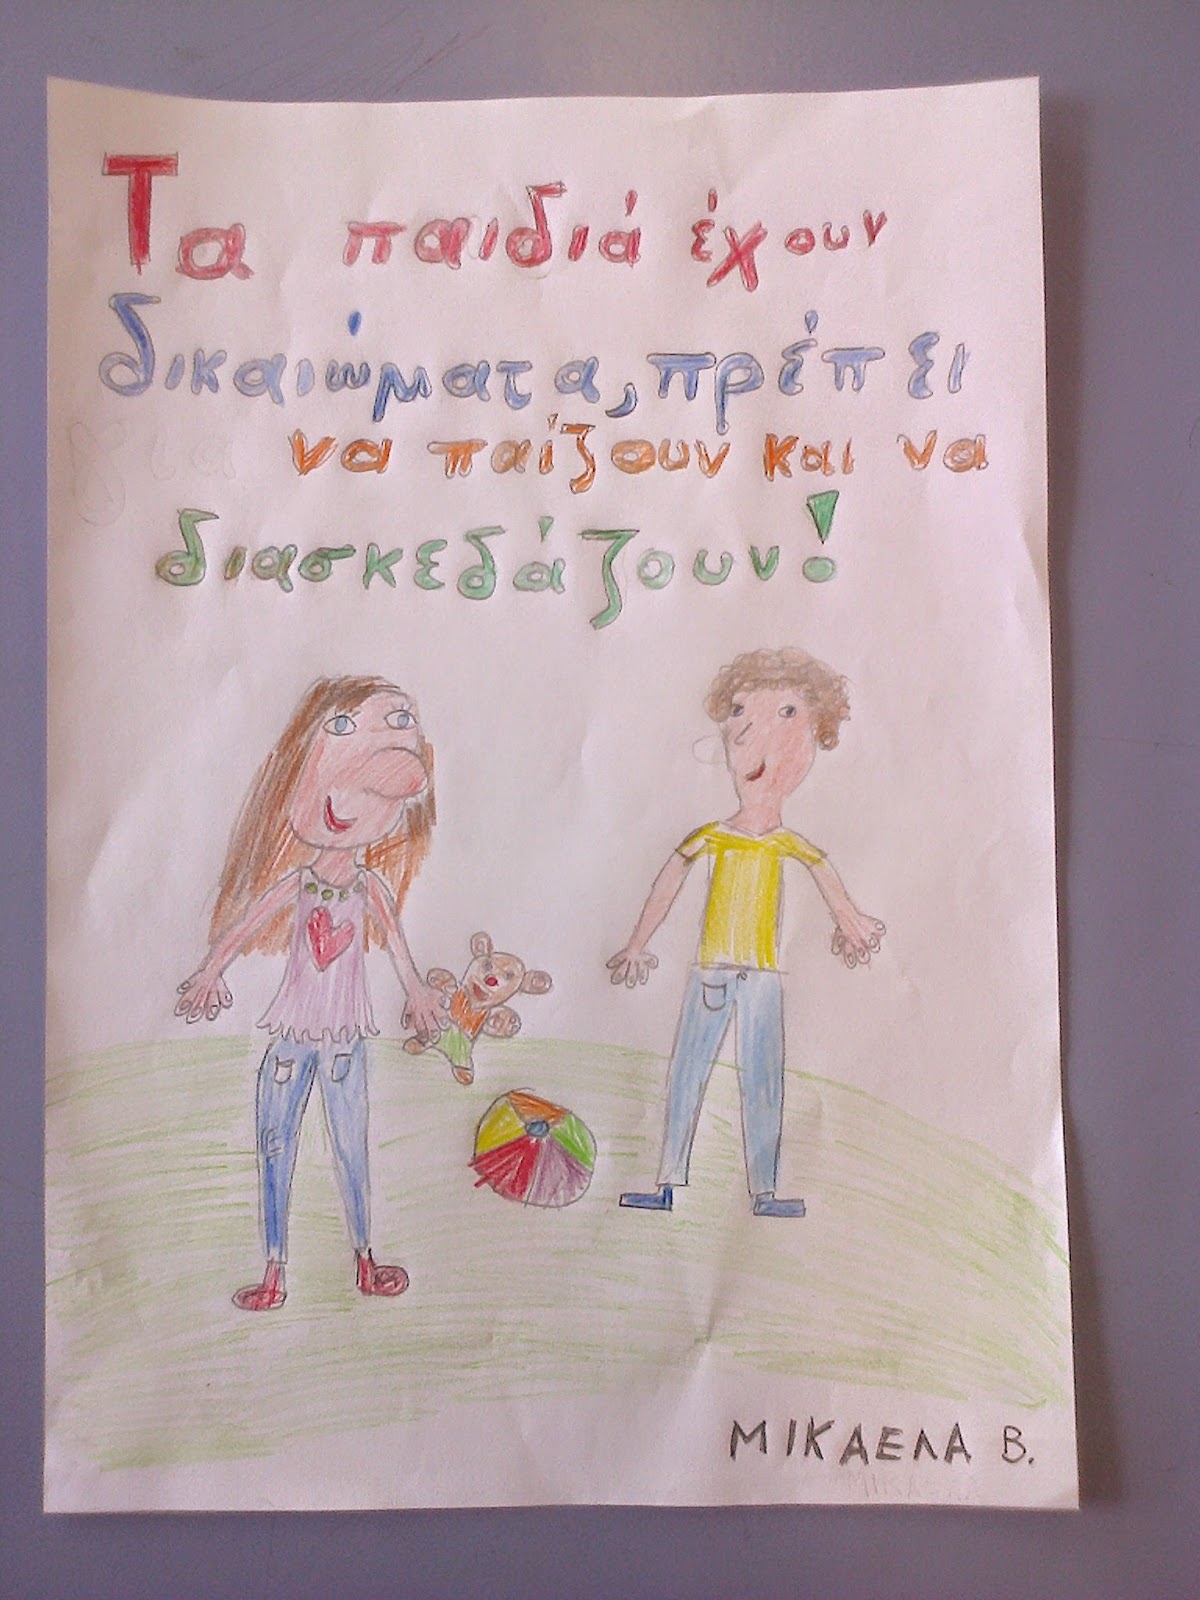 Τα παιδιά έχουν
δικαιώματα, πρέπει
να παίζουν και να
διασκεδάζουν!
ΜΙΚΑΕΛΑ Β.